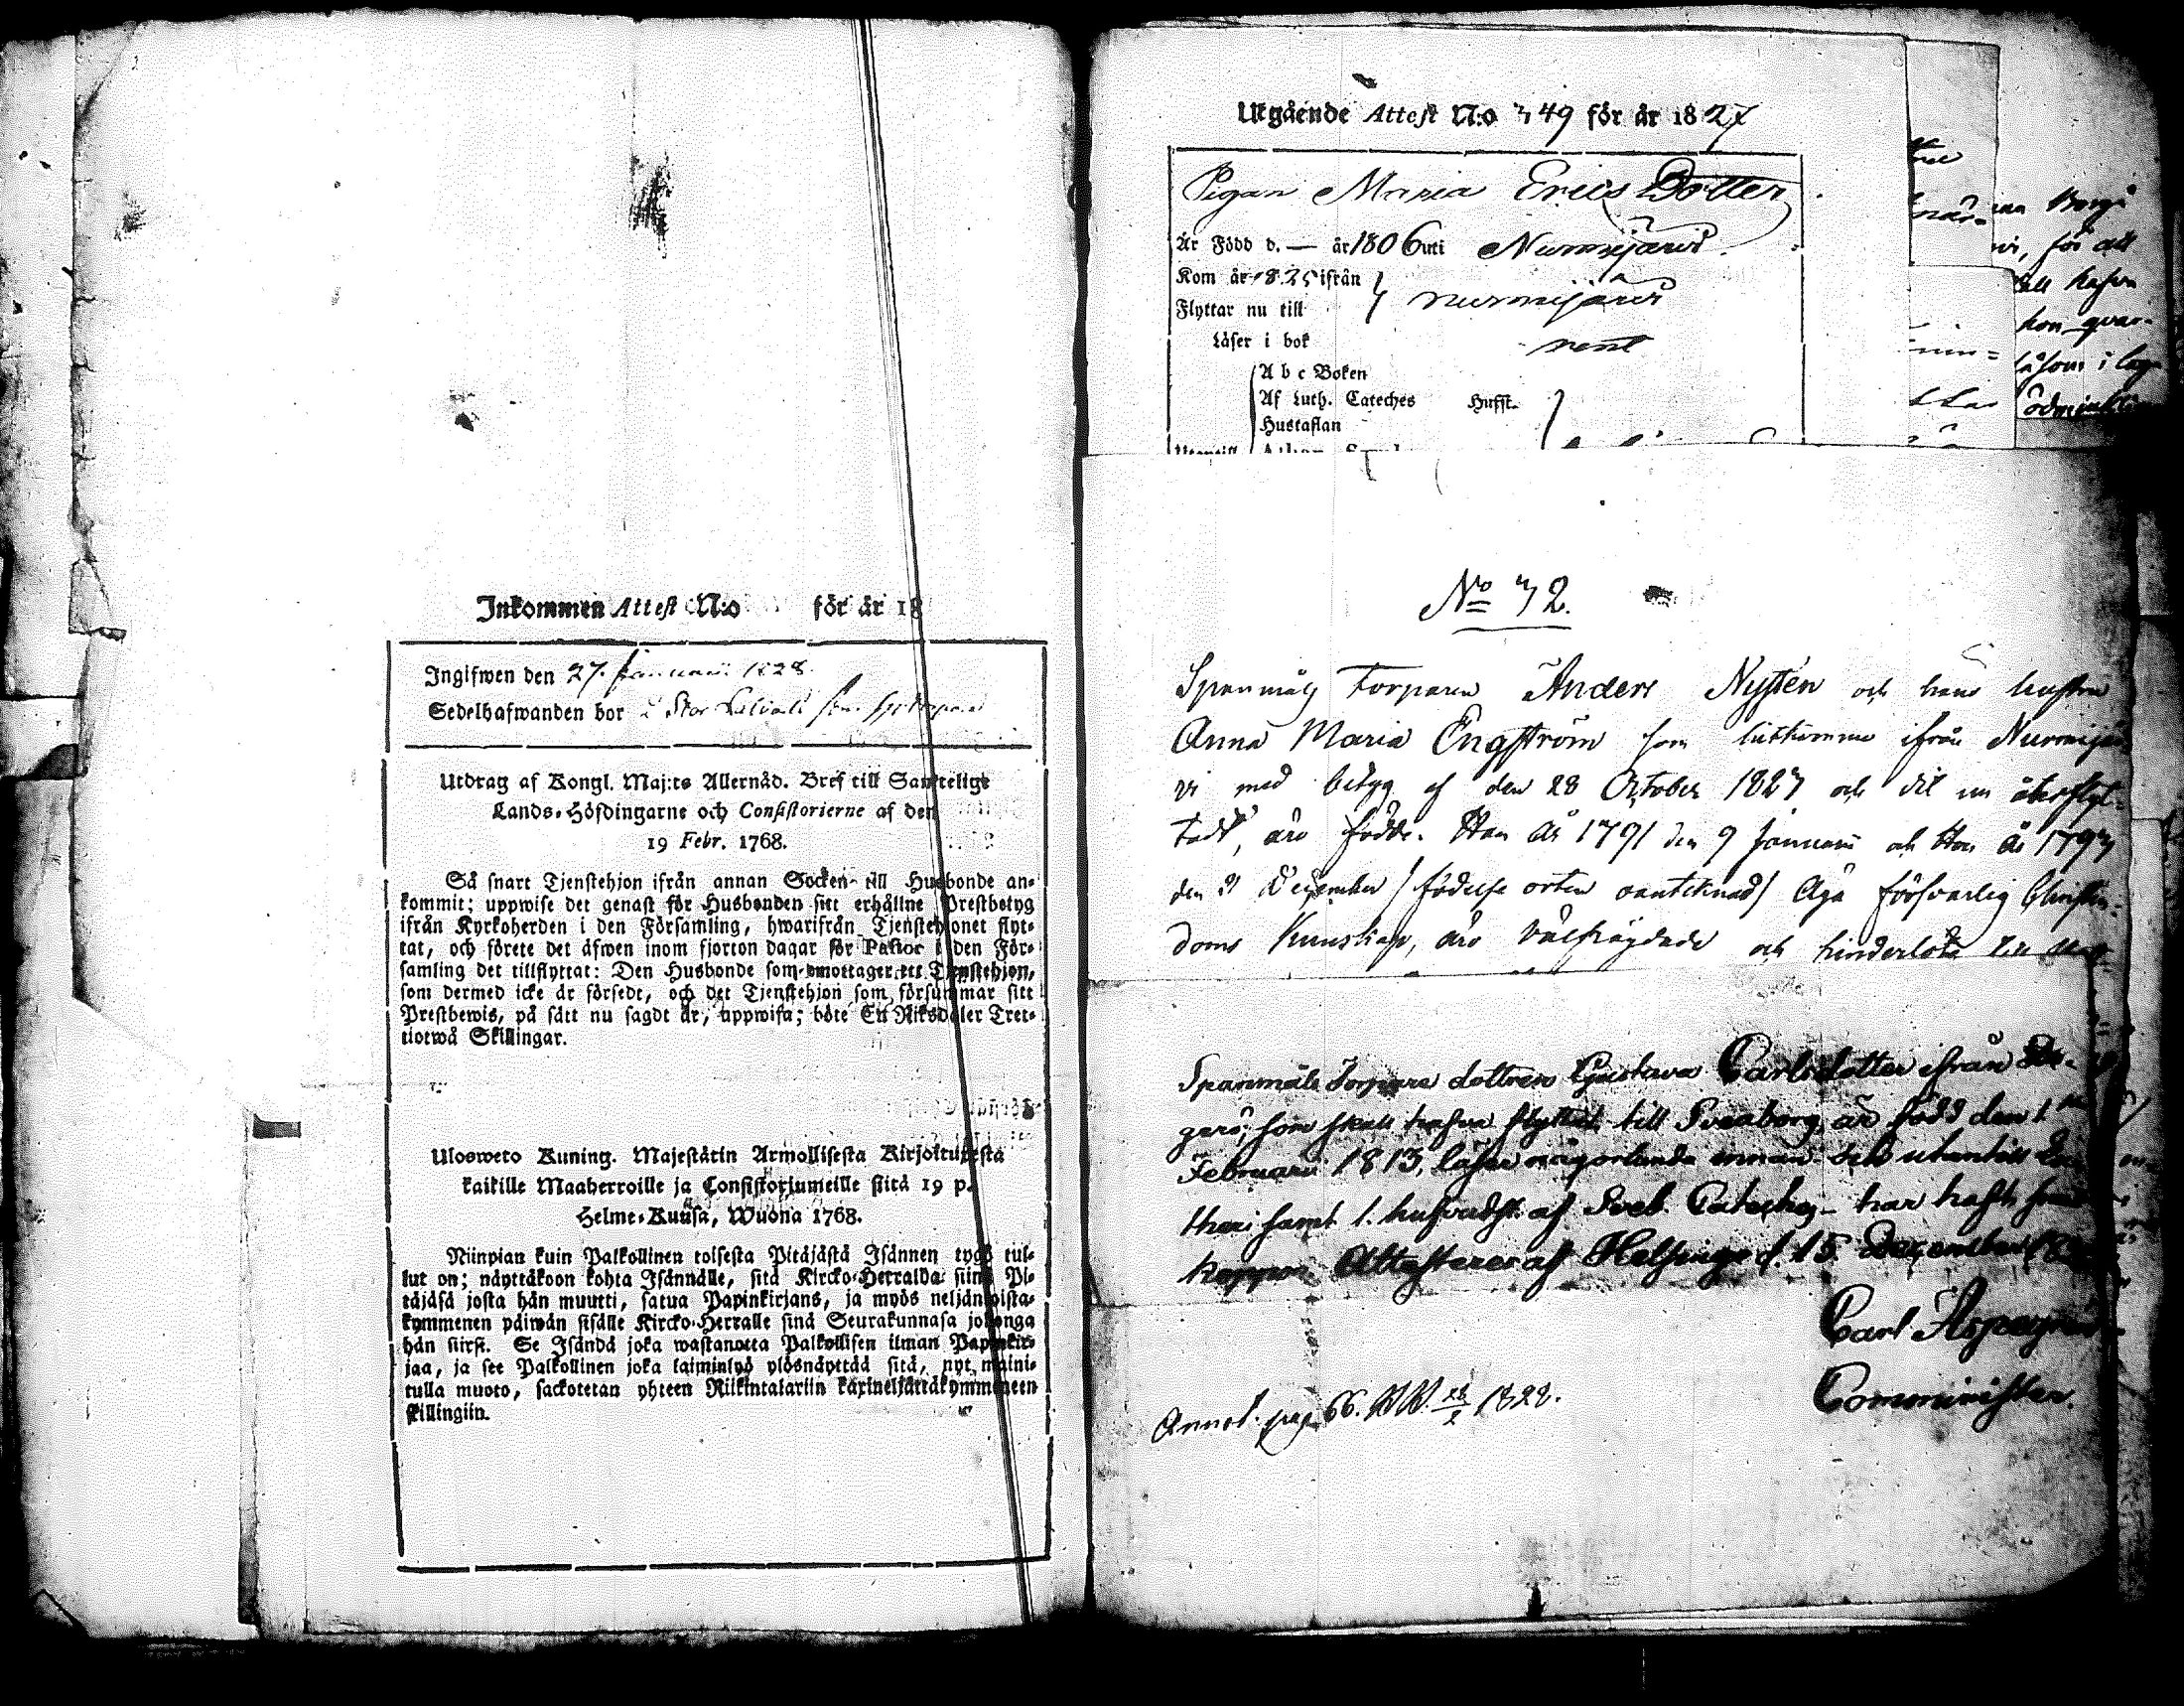 Inkommen Attest N:o för år 18
Ingifwen den 27. Januarii 1828.
Sedelhafwanden bor
Utdrag af Kongl. Maj:ts Allernåd. Bref till Samtelige
Lands-Höfdingarne och Consistorierne af den
19 Febr. 1768.
Så snart Tjenstehjon ifrån annan Socken till Husbonde an-
kommit; uppwise det genast för Husbonden sitt erhållne Prestbetyg
ifrån Kyrkoherden i den Församling, hwarifrån Tjenstehjonet flyt-
tat, och förete det äfwen inom fjorton dagar för Pastor i den För-
samling det tillflyttat: Den Husbonde som emottager ett Tjenstehjon,
som dermed icke är försedt, och det Tjenstehjon som försummar sitt
Prestbewis, på sätt nu sagdt är, uppwisa; böte En Riksdaler Tret-
tiotwå Skillingar.
Ulosweto Kuning. Majestätin Armollisesta Kirjoituxesta
kaikille Maaherroille ja Consistoriumeille siitä 19 p.
Helme-Kuusa, Wuona 1768.
Niinpian kuin Palkollinen toisesta Pitäjästä Isännen tygö tul-
lut on; näyttäkoon kohta Isännälle, sitä Kircko-Herralda siinä Pi-
täjäsä josta hän muutti, satua Papinkirjans, ja myös neljäntoista-
kymmenen päiwän sisälle Kircko-Herralle sinä Seurakunnasa johonga
hän siirsi. Se Isändä joka wastanotta Palkollisen ilman Papinkir-
jaa, ja see Palkollinen joka laiminlyö ylösnäyttää sitä, nyt maini-
tulla muoto, sackotetan yhteen Riikintalariin kaxineljättäkymmeneen
skillingiin.
Utgående Attest N:o 349 för år 1827
Pigan Maria Erics Dotter
Är Född d. — år 1806 uti Nurmijärvi
Kom år 1825 ifrån
Flyttar nu till Nurmijärvi
Läser i bok rent
A b c Boken
Af Luth. Cateches Hufst.
Hustaflan
för att
hon qvar-
såsom i lag
No 32.
Spanmåls Torparen Anders Nystén och hans hustru
Anna Maria Engström som hitkomne ifrån Nurmijär
vi med betyg af den 28 October 1827 och dit nu återflyt-
tadt, äro födde. Han År 1791 den 9 Januarii och Hon År 1797
den 21 December / födelse orten oantecknad / Äga försvarlig Christen-
doms Kunskap, äro välfrägdade och hinderlösa
Spanmåls Torpare dottren Gustava Carlsdotter ifrån
som skall hafva flyttat till Sveaborg är född den 1
Februarii 1813, läser någorlunda innan och utantill
samt 1. hufvudst. af Sveb. Cateches - har haft
koppor. Attesterar af Helsinge d. 15 December
Carl
Comminister.
Annot. pag 66. 28/2 1828.